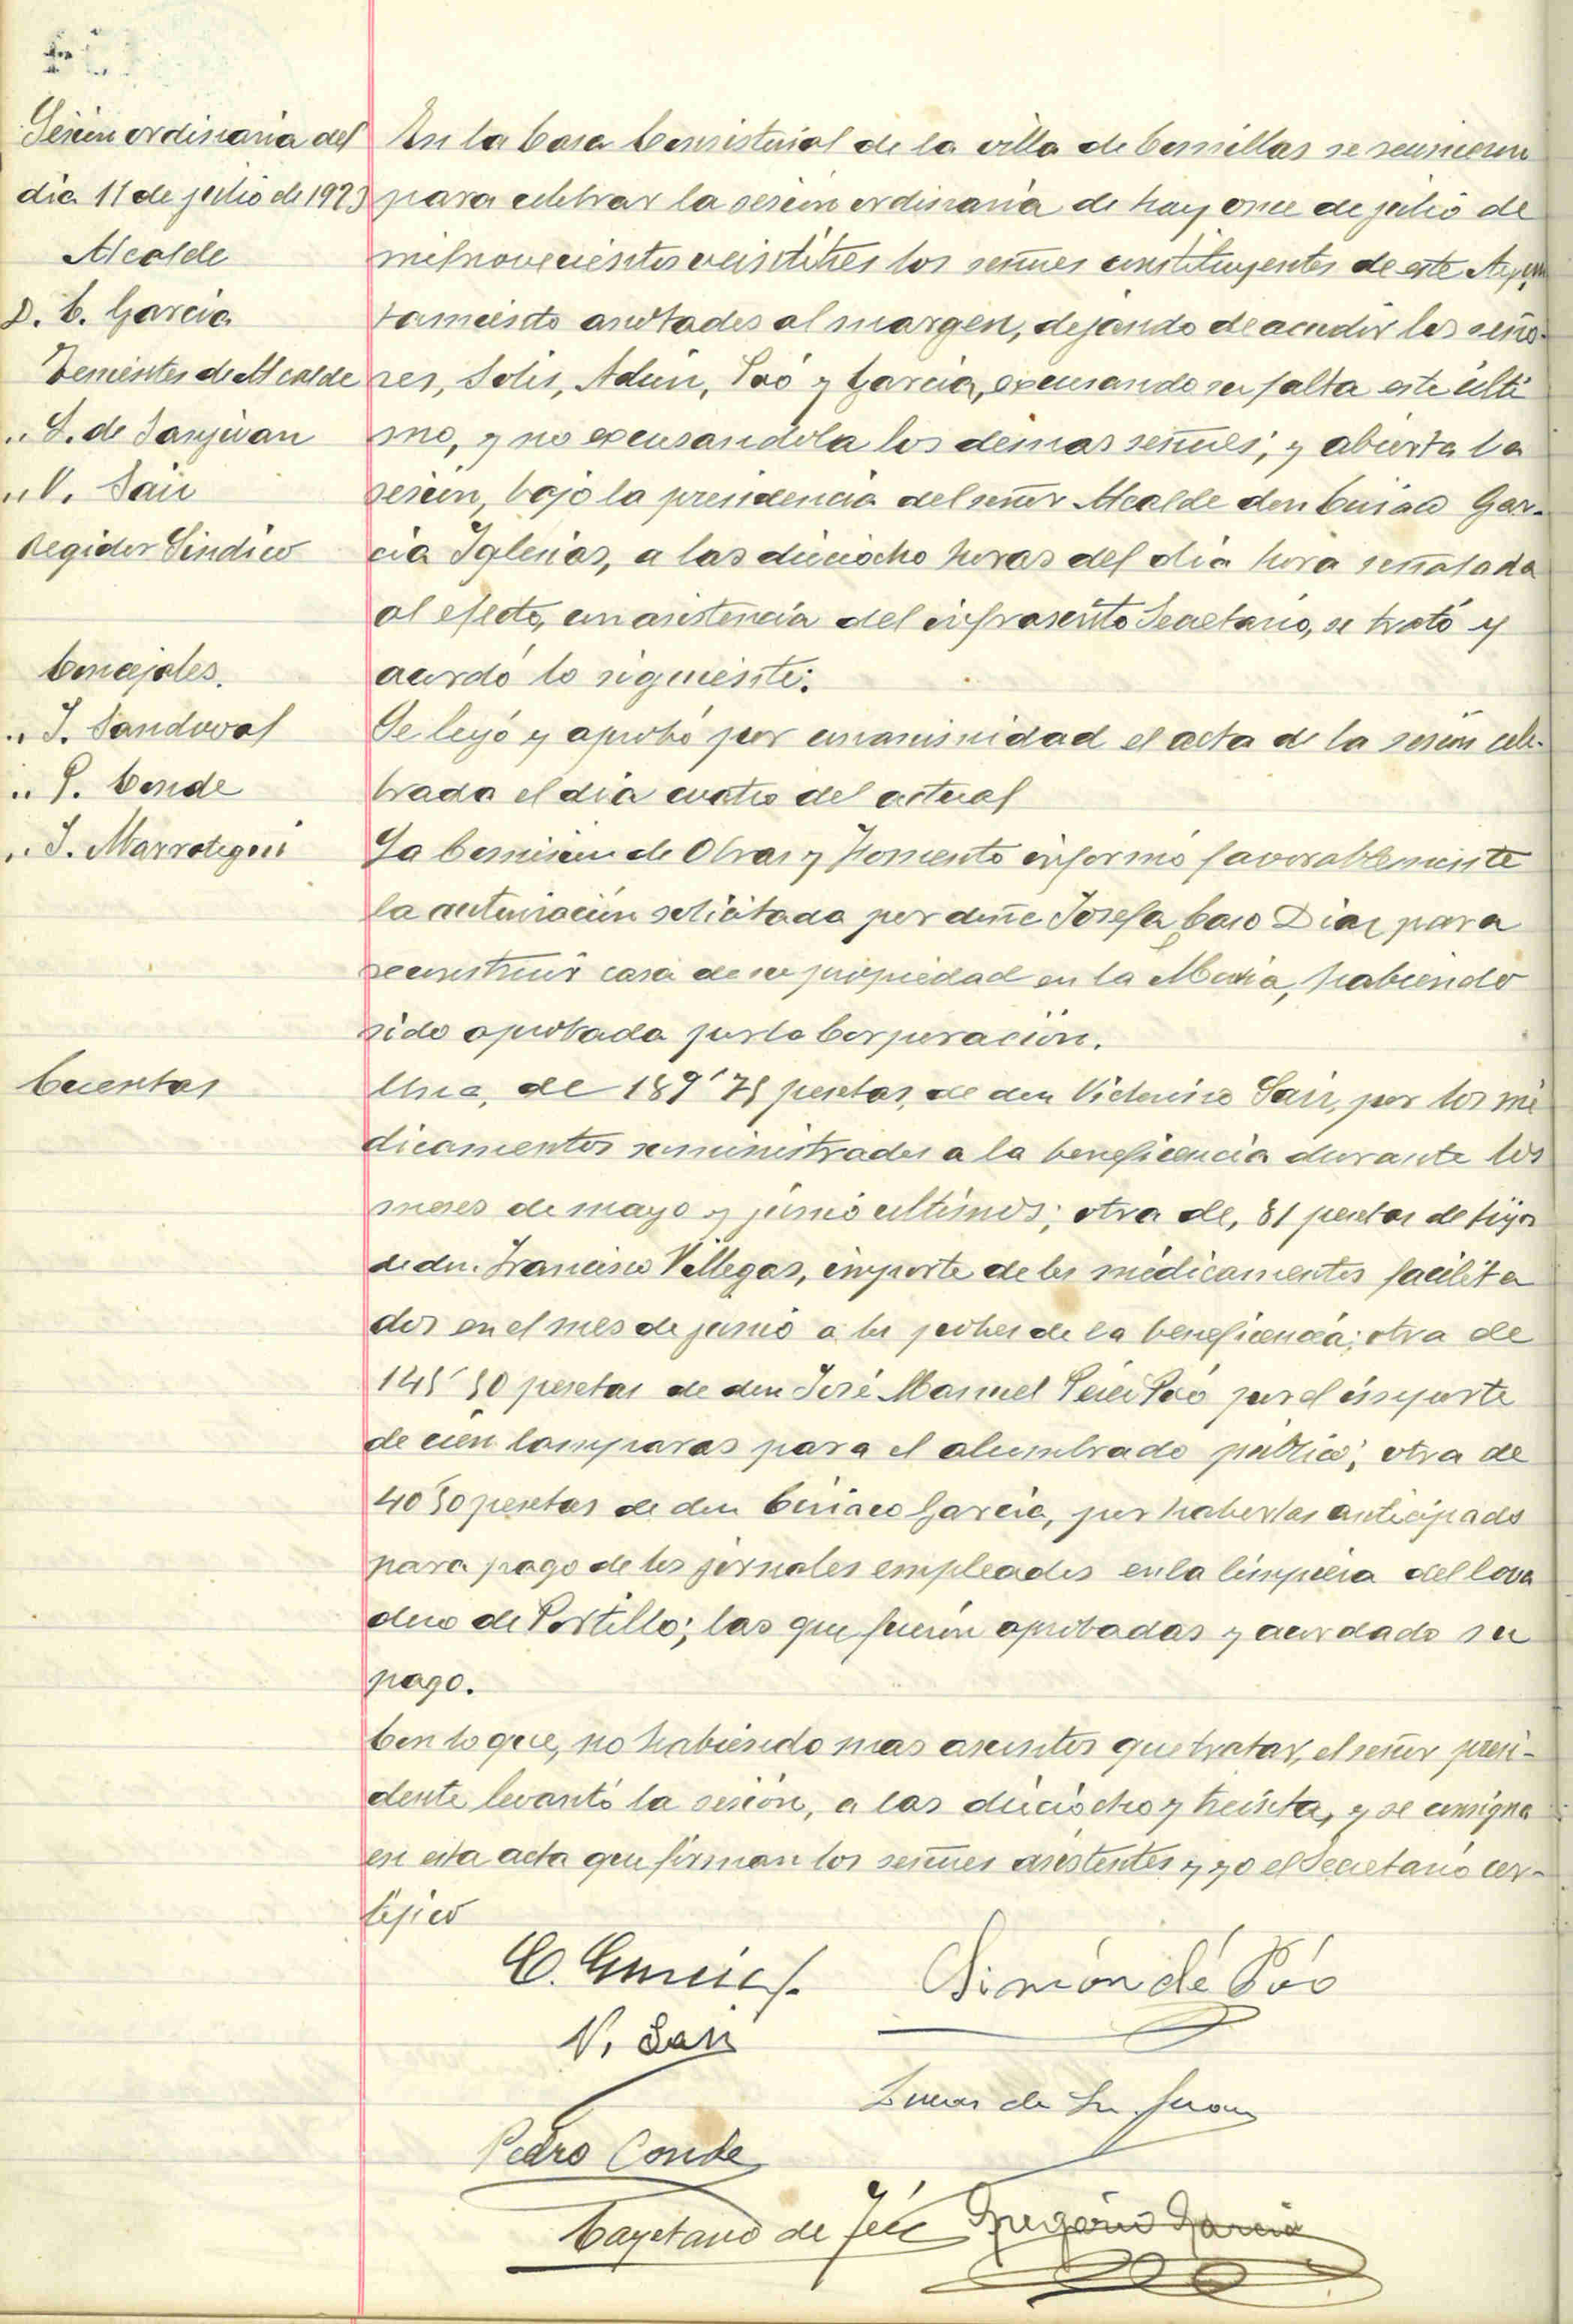 Sesión ordinaria del
dia 11 de julio de 1923
Alcalde
D. C. Garcia
Tenientes de Alcalde
" L. de Sanjuan
" V. Saiz
Regidor Sindico
Concejales.
" J. Sandoval
" P. Conde
" J. Marrotegui
Cuentas
En la Casa Consistorial de la villa de Comillas se reunieron
para celebrar la sesión ordinaria de hoy once de julio de
mil novecientos veintitres los señores constituyentes de este Ayun
tamiento anotados al margen, dejando de acudir los seño-
res, Solis, Adun, Poó y Garcia, excusando su falta este ulti
mo, y no excusandola los demas señores; y abierta la
sesión, bajo la presidencia del señor Alcalde don Ciriaco Gar-
cia Iglesias, a las dieciocho horas del dia hora señalada
al efecto, con asistencia del infrascrito Secretario, se trató y
acordó lo siguiente:
Se leyó y aprobó por unanimidad el acta de la sesión cele-
brada el dia cuatro del actual
La Comision de Obras y Fomento informó favorablemente
la autorización solicitada por doña Josefa Caso Diaz para
reconstruir casa de su propiedad en la , habiendo
sido aprobada por la Corporación.
Una, de 189'75 pesetas, de don Victorino Saiz, por los me
dicamentos suministrados a la beneficencia durante los
meses de mayo y junio ultimos; otra de, 81 pesetas de hijos
de dn. Francisco Villegas, importe de los medicamentos facilita
dos en el mes de junio a los pobres de la beneficencia; otra de
145'50 pesetas de don José Manuel Perez Poó por el importe
de cien lamparas para el alumbrado publico; otra de
40'50 pesetas de don Ciriaco Garcia, por haberlas anticipado
para pago de los jornales empleados en la limpieza del lava
dero de Portillo; las que fueron aprobadas y acordado su
pago.
Con lo que, no habiendo mas asuntos que tratar, el señor presi-
dente levantó la sesión, a las dieciocho y treinta, y se consigna
en esta acta que firman los señores asistentes y yo el Secretario cer-
tifico
C. Garcia
Simón de Poó
V. Saiz
Lucas de Sn. Juan
Pedro Conde
Cayetano de
Gregorio Garcia